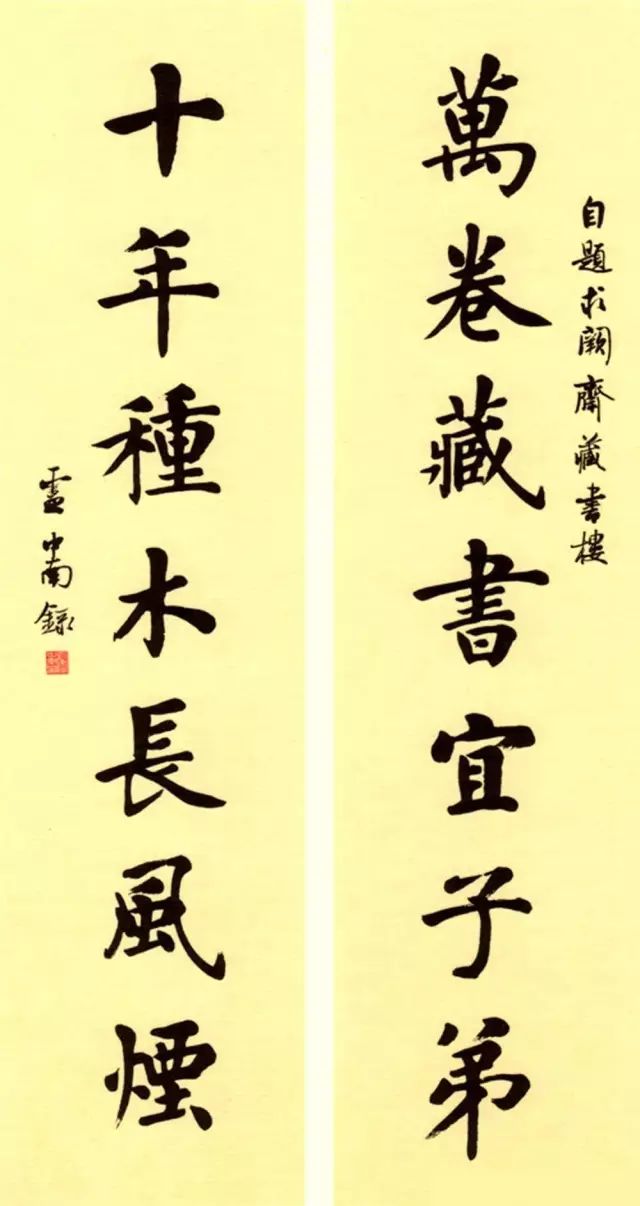 自題求闕齋藏書樓
萬卷藏書宜子弟
十年種木長風煙
盧中南錄